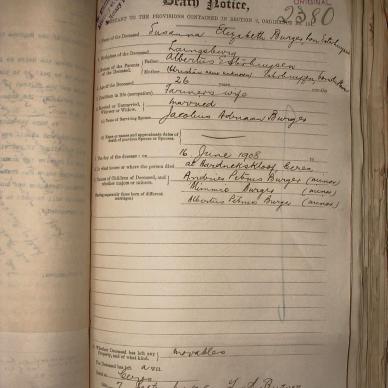 Death Notice,
ORIGINAL
2380
PURSUANT TO THE PROVISIONS CONTAINED IN SECTION
Name of the Deceased Susanna Elizabeth Burger, born Esterhuysen
Birthplace of the Deceased Laingsburg
Names of the Parents of the Deceased. Father Albertus Esterhuysen
Mother (Christian name unknown) Esterhuysen
Age of the Deceased 26 years
Condition in life (occupation) Farmer's wife
Married or Unmarried, Widower or Widow. married
(a) Name of Surviving Spouse Jacobus Adriaan Burger
(b) Name or names and approximate dates of death of previous Spouse or Spouses.
The day of the decease :- on 16 June 1908
In what house or where the person died at Hardnekskloof Ceres
Names of Children of Deceased, and whether majors or minors. Andries Petrus Burger (minor)
Minnie Burger (minor)
(Stating separately those born of different marriages) Albertus Petrus Burger (minor)
Whether Deceased has left any Property, and of what kind. movables
The Deceased has left a will
Dated at Ceres